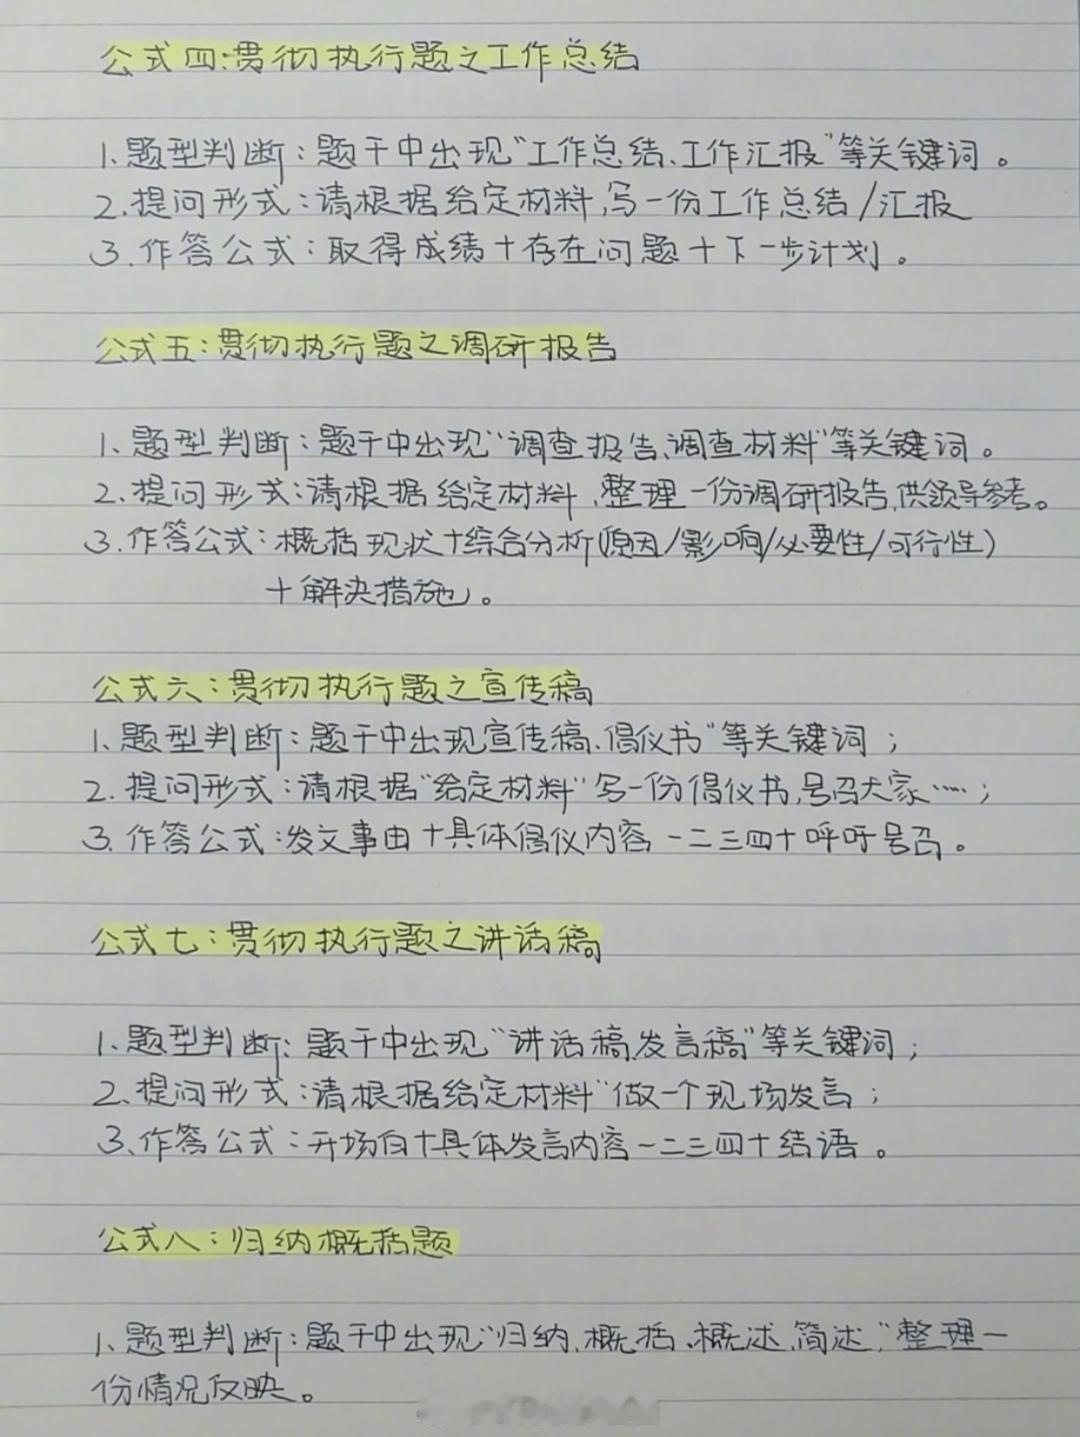 公式四:贯彻执行题之工作总结
1、题型判断：题干中出现“工作总结、工作汇报”等关键词。
2.提问形式：请根据给定材料,写一份工作总结/汇报
3.作答公式：取得成绩+存在问题+下一步计划。
公式五：贯彻执行题之调研报告
1、题型判断：题干中出现“调查报告、调查材料”等关键词。
2.提问形式：请根据给定材料,整理一份调研报告,供领导参考。
3.作答公式：概括现状+综合分析(原因/影响/必要性/可行性)
+解决措施。
公式六：贯彻执行题之宣传稿
1、题型判断：题干中出现宣传稿、倡仪书”等关键词；
2.提问形式：请根据“给定材料”写一份倡仪书,号召大家……；
3.作答公式：发文事由+具体倡仪内容一二三四+呼吁号召。
公式七：贯彻执行题之讲话稿
1、题型判断：题干中出现“讲话稿、发言稿”等关键词；
2、提问形式：请根据给定材料“做一个现场发言；
3、作答公式：开场白+具体发言内容一二三四+结语。
公式八：归纳概括题
1、题型判断：题干中出现“归纳、概括、概述、简述,”整理一
份情况反映。